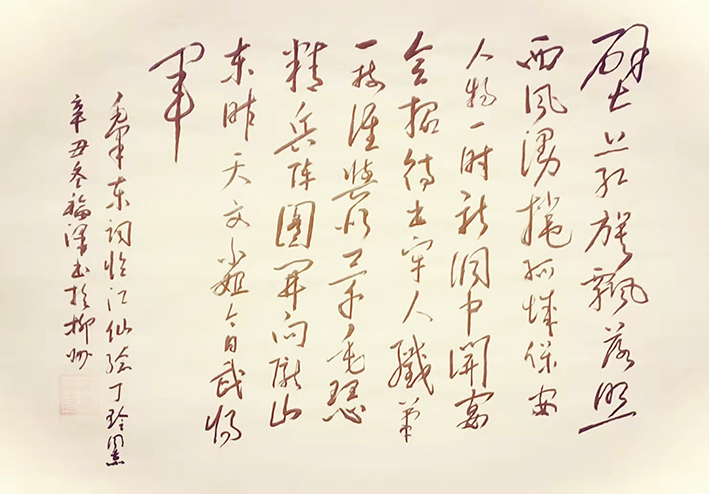 壁上红旗飘落照
西风漫捲孤城保安
人物一时新洞中開宴
会招待出牢人纖笔
一枝谁與似三千毛瑟
精兵阵图开向陇山
东昨天文小姐今日武将
军
毛泽东词临江仙给丁玲同志
辛丑冬福书于柳州